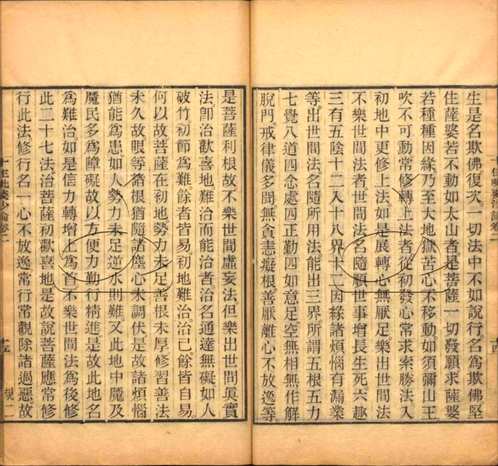 生是名欺佛復次不如說行名爲欺佛堅
住薩婆若不動如太山者是菩薩一切發願求薩婆
若種種因緣乃至大地獄苦心不移動如須彌山王
吹不可動常修轉上法者從初發心常求索勝法入
初地中更修上法如是展轉心無厭足樂出世間法
不樂世間法者世間法名隨順世事增長生死六趣
三有五陰十二入十八界十二因緣諸煩惱有漏業
等出世間法名隨所用法能出三界所謂五根五力
七覺八道四念處四正勤四如意足空無相無作解
脫門戒律儀多聞無貪恚癡根善厭離心不放逸等
是菩薩利根故不樂世間虛妄法但樂出世間真實
法卽治歡喜地難治而能治者治名通達無礙如人
破竹初節爲難餘者皆易初地難治治已餘皆自易
何以故菩薩在初地勢力未足善根未厚修習善法
未久故眼等諸根猶隨諸塵心未調伏是故諸煩惱
猶能爲患如人勢力未足逆水則難又此地中魔及
魔民多爲障礙故以方便力勤行精進是故此地名
爲難治如是信力轉增上爲首不樂世間法爲後修
此二十七法治菩薩初歡喜地是故說菩薩應常修
行此法修行名一心不放逸常行常觀除諸過惡故